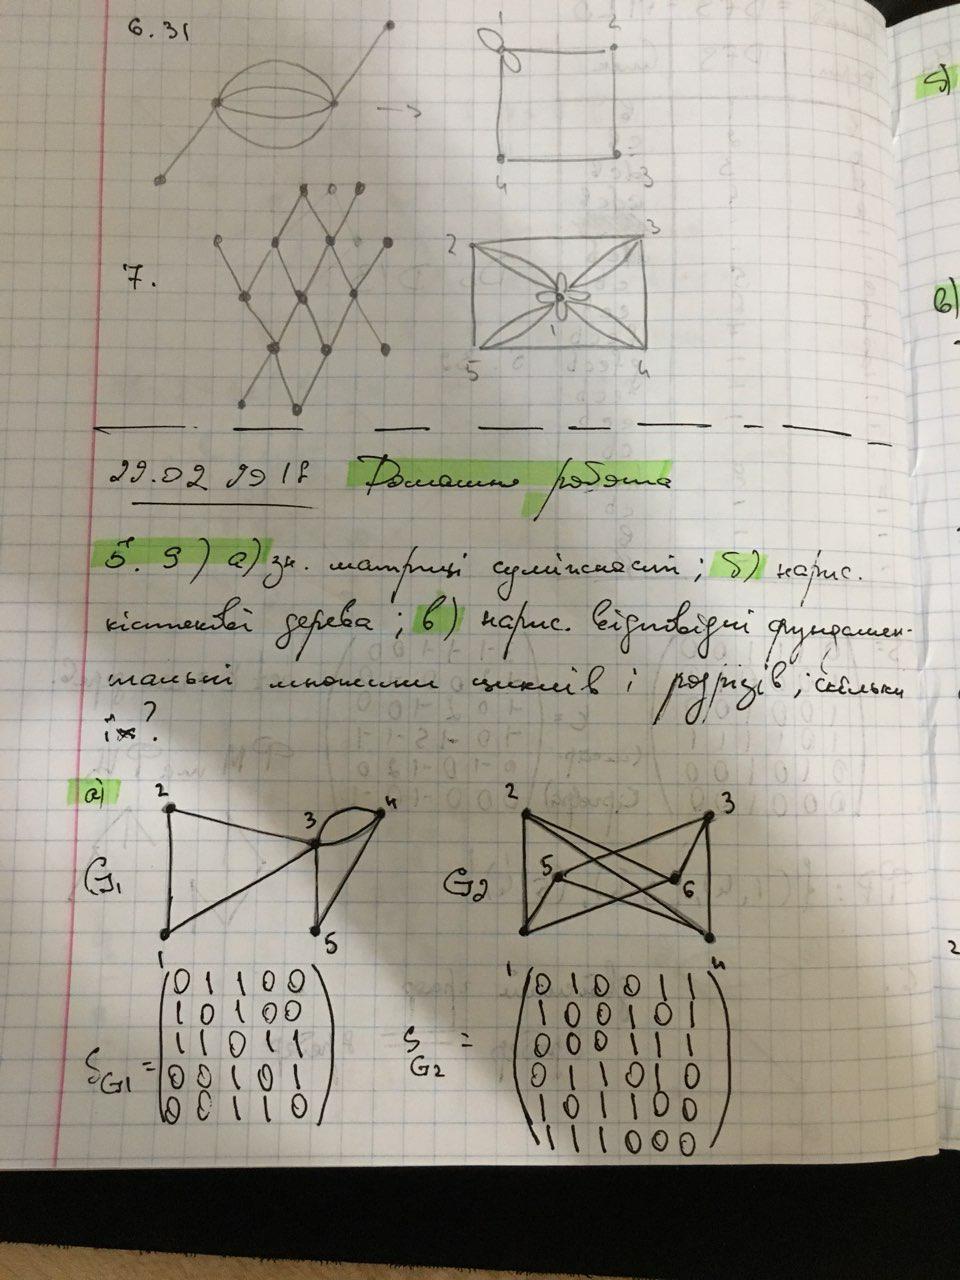 6.31
1 2
4 3
7.
2 3
1
5 4
Домашня робота
5. 9) а) зн. матриці суміжності; б) нарис.
кістякові дерева; в) нарис. відповідні фундамен-
тальні множини циклів і розрізів; скільки
їх?
а)
2 3 4
G1
1 5
2 3
5 6
G2
1 4
SG1 =
0 1 1 0 0
1 0 1 0 0
1 1 0 1 1
0 0 1 0 1
0 0 1 1 0
SG2 =
0 1 0 0 1 1
1 0 0 1 0 1
0 0 0 1 1 1
0 1 1 0 1 0
1 0 1 1 0 0
1 1 1 0 0 0
б)
в)
2